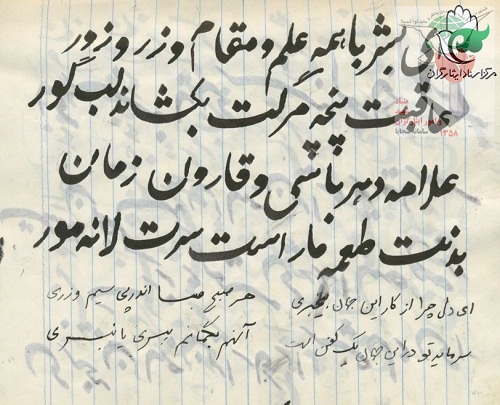 مرکز اسناد ایثارگران
ای بشر با همه علم و مقام و زر و زور
عاقبت پنجه مرگت بکشاند لب گور
۱۳۵۸
علامه دهر باشی و قارون زمان
بدنت طعمه مار است سرت لانه مور
ای دل چرا از کار این جهان بیخبری هر صبح و مسا اندر پی سیم و زری
سرمایه تو در این جهان یک کفن است آنهم بگمانم ببری یا نبری